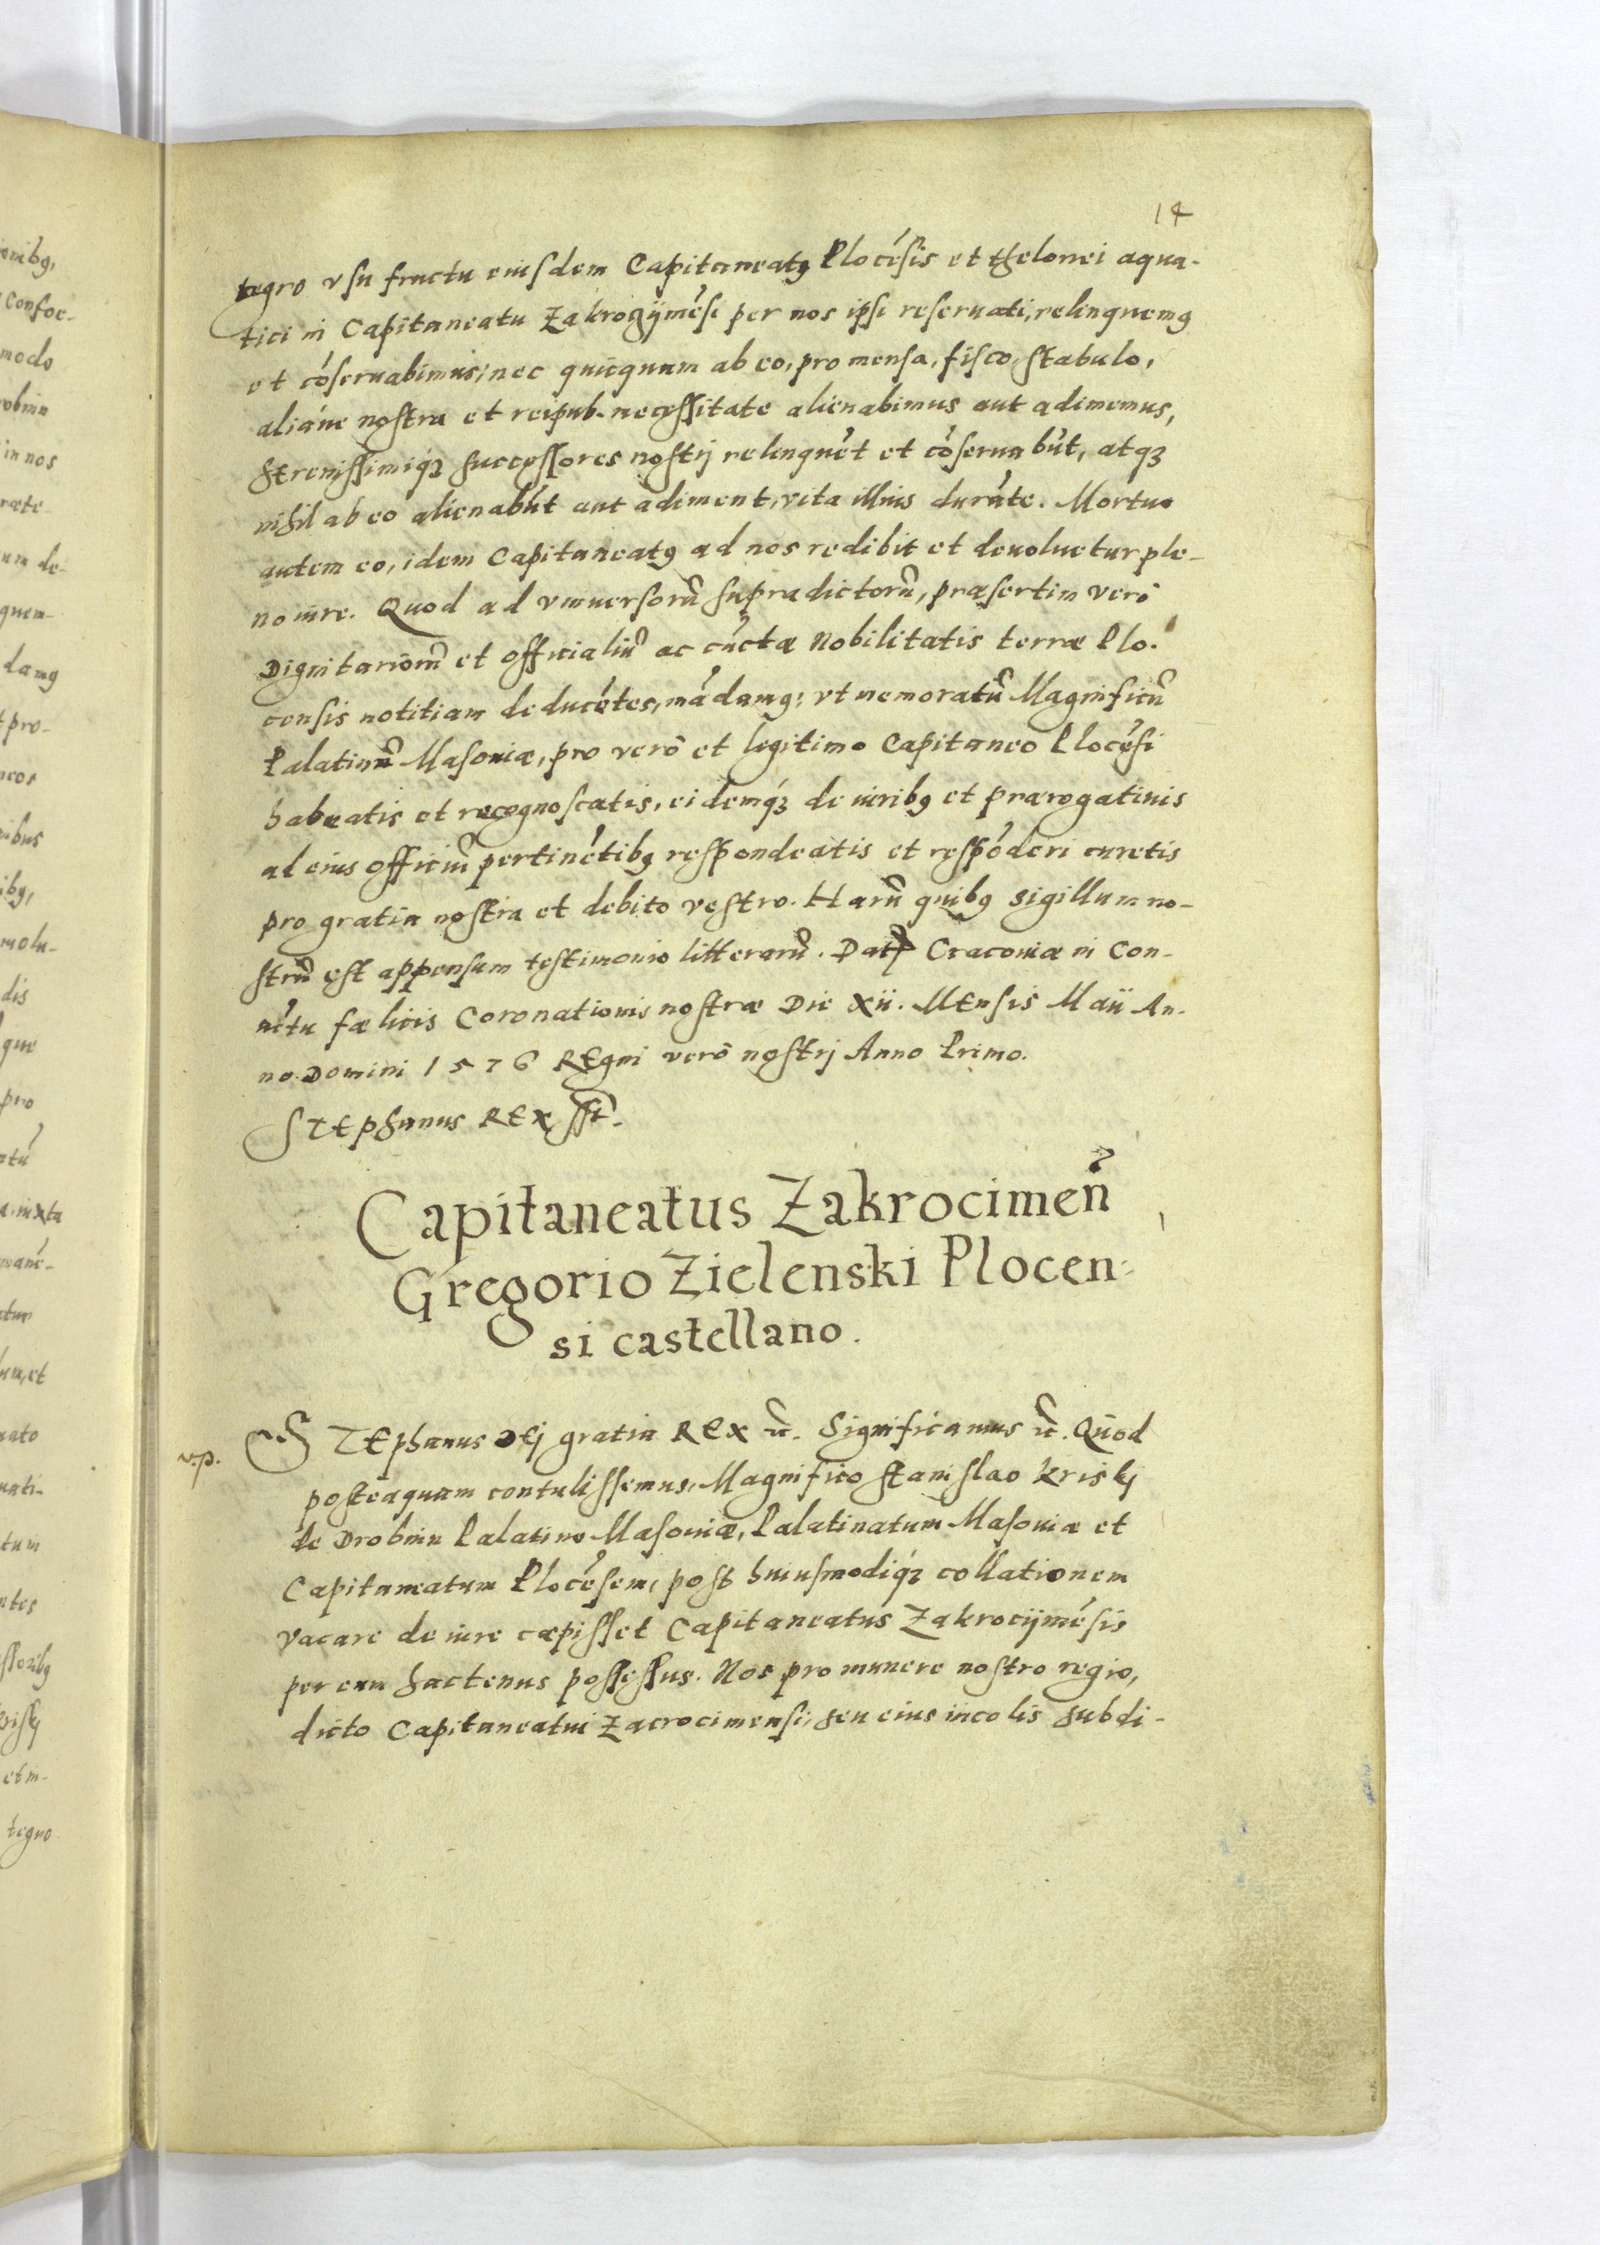 14
tegro vsu fructu eiusdem Capitaneatꝰ Plocẽsis et thelonei aqua-
tici in Capitaneatu Zakrogÿmẽsi per nos ipsi reseruati, relinquemꝰ
et cõseruabimus, nec quicquam ab eo, pro mensa, fisco, stabulo,
aliáue nostra et reipub. necessitate alienabimus aut adimemus,
Serenissimiqꝫ successores nostrj relinquẽt et cõseruabũt, atqꝫ
nihil ab eo alienabũt aut adiment, vita illius durãte. Mortuo
autem eo, idem Capitaneatꝰ ad nos redibit et deuoluetur ple-
no iure. Quod ad vniuersorũ supradictorũ, præsertim verò
Dignitariorũ et officialiũ ac cũctæ Nobilitatis terræ Plo-
censis notitiam deducẽtes, mãdamꝰ, vt memoratũ Magnificũ
Palatinũ Masoviæ, pro verò et legitimo Capitaneo Plocẽsi
habeatis et recognoscatis, eidemqꝫ de iuribꝰ et prærogatiuis
ad eius officiũ pertinẽtibꝰ respondeatis et respõderi curetis
pro gratia nostra et debito vestro. Harũ quibꝰ sigillum no-
strũ est appensum testimonio litterarũ. Datꝭ Cracoviæ in Con-
uẽtu fælicis Coronationis nostræ Die xii. MEnsis Maii An-
no Domini 1576 REgni verò nostrj Anno Primo.
STEphanus REx sst.
Capitaneatus Zakrocimeñ
Gregorio Zielenski Plocen-
si castellano.
v.p.
STEphanus DEj gratia REx ꝛc. Significamus ꝛc. Quod
posteaquam contulissemus, Magnifico Stanislao Kriskj
de Drobnin Palatino Masoviæ, Palatinatum Masoviæ et
Capitaneatum Plocẽsem, post huiusmodiqꝫ collationem
vacare de iure cæpisset Capitaneatus Zakrocÿmẽsis
per eum hactenus possessus. Nos pro munere nostro regio,
dicto Capitaneatui Zacrocimensi, seu eius incolis subdi-